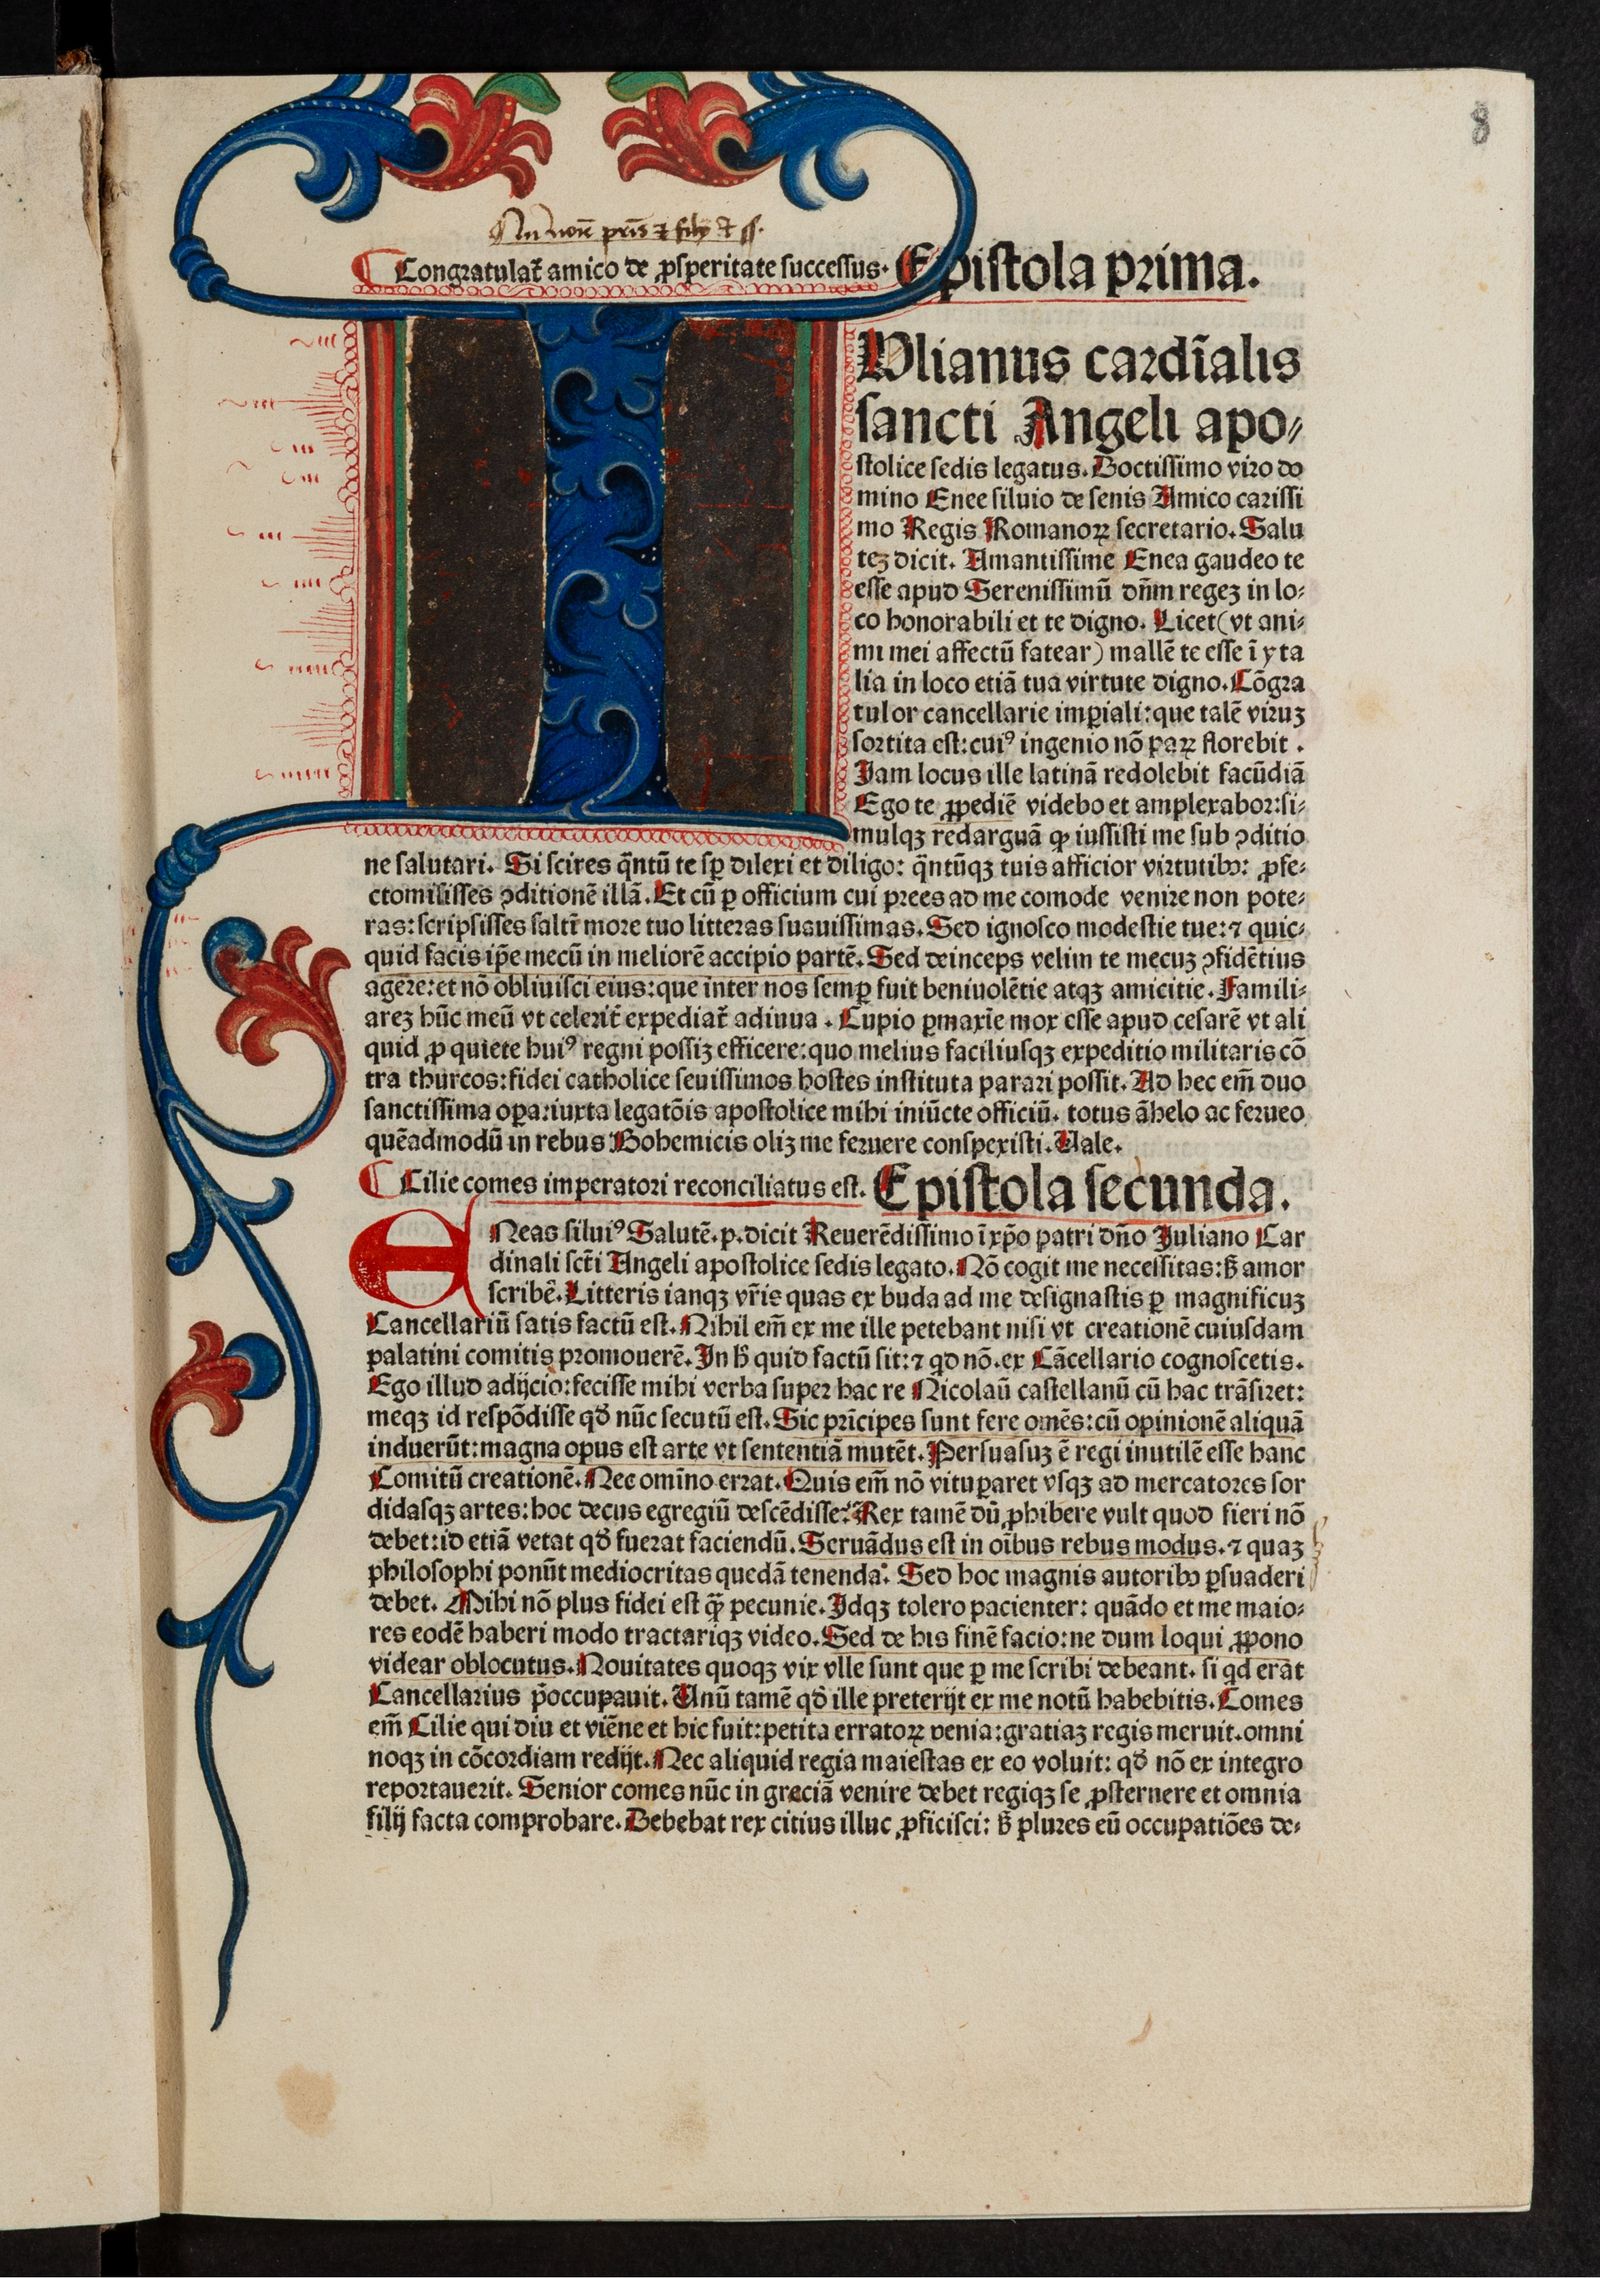 8
Congratulat᷑ amico de ꝓsperitate successus. Epistola prima.
Vlianus cardīalis
sancti Angeli apo⸗
stolice sedis legatus. Doctissimo viro do
mino Enee siluio de senis Amico carissi
mo Regis Romanoꝝ secretario. Salu
teꝫ dicit. Amantissime Enea gaudeo te
esse apud Serenissimū dn̄m regeꝫ in lo⸗
co honorabili et te digno. Licet (vt ani⸗
mi mei affectū fatear) mallē te esse ī yta
lia in loco etiā tua virtute digno. Cōgra
tulor cancellarie imꝑiali: que talē viruꝫ
sortita est: cuiꝰ ingenio nō paꝝ florebit .
Jam locus ille latinā redolebit facūdiā
Ego te ꝓpediē videbo et amplexabor: si⸗
mulqꝫ redarguā ꝙ iussisti me sub ꝯditio
ne salutari. Si scires q̄ntū te sꝑ dilexi et diligo: q̄ntūqꝫ tuis afficior virtutibꝰ: ꝓfe⸗
cto misisses ꝯditionē illā. Et cū ꝑ officium cui prees ad me comode venire non pote⸗
ras: scripsisses saltr̄ more tuo litteras suauissimas. Sed ignosco modestie tue: ⁊ quic⸗
quid facis ip̄e mecū in meliorē accipio partē. Sed deinceps velim te mecuꝫ ꝯfidētius
agere: et nō obliuisci eius: que inter nos semꝑ fuit beniuolētie atqꝫ amicitie. Famili⸗
areꝫ hūc meū vt celerit᷑ expediat᷑ adiuua . Cupio ꝑmaxīe mox esse apud cesarē vt ali
quid ꝓ quiete huiꝰ regni possiꝫ efficere: quo melius faciliusqꝫ expeditio militaris cō
tra thurcos: fidei catholice seuissimos hostes instituta parari possit. Ad hec em̄ duo
sanctissima oꝑa: iuxta legatōis apostolice mihi iniūcte officiū. totus āhelo ac ferueo
quēadmodū in rebus Bohemicis oliꝫ me feruere conspexisti. Vale.
Cilie comes imperatori reconciliatus est. Epistola secunda.
ENeas siluiꝰ Salutē. p. dicit Reuerēdissimo ī xp̄o patri dn̄o Juliano Car
dinali sct̄i Angeli apostolice sedis legato. Nō cogit me necessitas: sꝫ amor
scribē. Litteris ianqꝫ vr̄is quas ex buda ad me designastis ꝑ magnificuꝫ
Cancellariū satis factū est. Nihil em̄ ex me ille petebant nisi vt creationē cuiusdam
palatini comitis promouerē. In hͦ quid factū sit: ⁊ qd nō. ex Cācellario cognoscetis.
Ego illud adijcio: fecisse mihi verba super hac re Nicolaū castellanū cū hac trāsiret:
meqꝫ id respōdisse qđ nūc secutū est. Sic prīcipes sunt fere omēs: cū opinionē aliquā
induerūt: magna opus est arte vt sententiā mutēt. Persuasuꝫ ē regi inutilē esse hanc
Comitū creationē. Nec omīno errat. Quis em̄ nō vituꝑaret vsqꝫ ad mercatores sor
didasqꝫ artes: hoc decus egregiū descēdisse? Rex tamē dū ꝓhibere vult quod fieri nō
debet: id etiā vetat qđ fuerat faciendū. Seruādus est in oībus rebus modus. ⁊ quaꝫ
philosophi ponūt mediocritas quedā tenenda. Sed hoc magnis autoribꝰ ꝑsuaderi
debet. Mihi nō plus fidei est ꝙ̄ pecunie. Idqꝫ tolero pacienter: quādo et me maio⸗
res eodē haberi modo tractariqꝫ video. Sed de his finē facio: ne dum loqui ꝓpono
videar oblocutus. Nouitates quoqꝫ vix vlle sunt que ꝑ me scribi debeant. si qd erāt
Cancellarius p̄occupauit. Vnū tamē qđ ille preterijt ex me notū habebitis. Comes
em̄ Cilie qui diu et viēne et hic fuit: petita erratoꝝ venia: gratiaꝫ regis meruit. omni
noqꝫ in cōcordiam redijt. Nec aliquid regia maiestas ex eo voluit: qđ nō ex integro
reportauerit. Senior comes nūc in greciā venire debet regiqꝫ se ꝓsternere et omnia
filij facta comprobare. Debebat rex citius illuc ꝓficisci: sꝫ plures eū occupatiōes de⸗